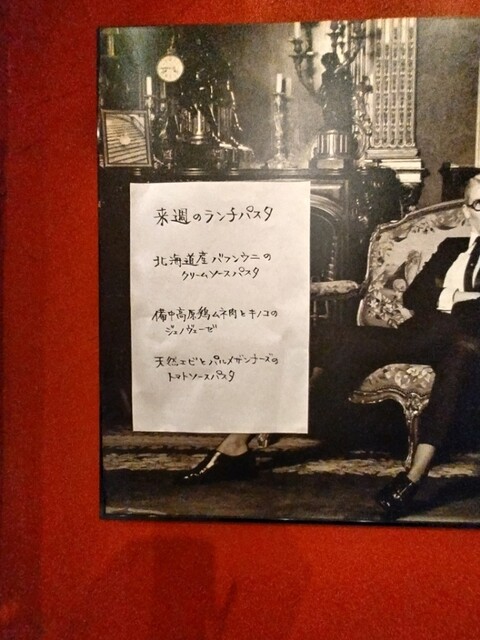 来週のランチパスタ
北海道産バフンウニの
クリームソースパスタ
備中高原鶏ムネ肉とキノコの
ジェノヴェーゼ
天然エビとパルメザンチーズの
トマトソースパスタ